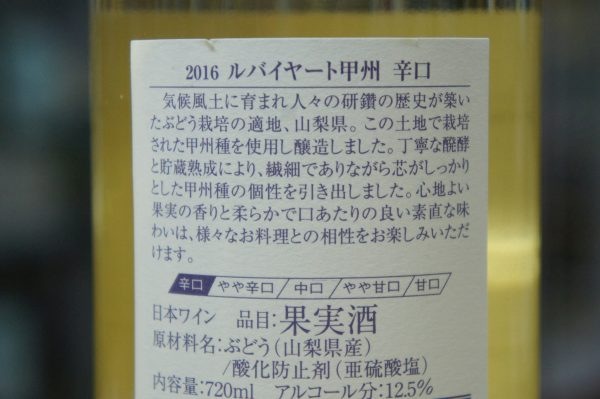 2016 ルバイヤート甲州 辛口
気候風土に育まれ人々の研鑽の歴史が築い
たぶどう栽培の適地、山梨県。この土地で栽培
された甲州種を使用し醸造しました。丁寧な醗酵
と貯蔵熟成により、繊細でありながら芯がしっかり
とした甲州種の個性を引き出しました。心地よい
果実の香りと柔らかで口あたりの良い素直な味
わいは、様々なお料理との相性をお楽しみいただ
けます。
辛口/やや辛口/中口/やや甘口/甘口
日本ワイン 品目:果実酒
原材料名:ぶどう(山梨県産)
/酸化防止剤(亜硫酸塩)
内容量:720ml アルコール分:12.5%